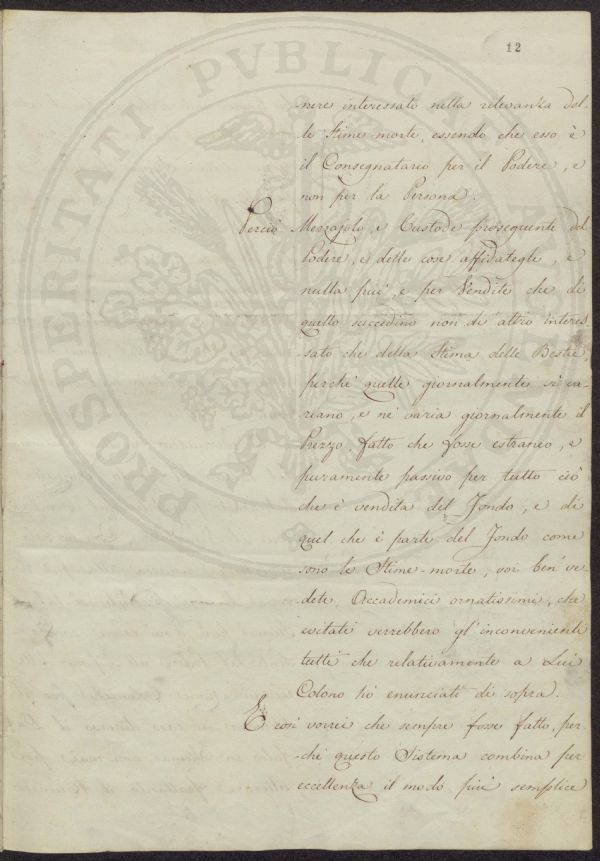 12
PROSPERITATI PVBLICAE
-nere interessato nella relevanza del-
le Stime-morte, essendo che esso è
il Consegnatario per il Podere, e
non per la Persona.
Perciò Mezzajolo, e Custode proseguente del
Podere, e delle cose affidategli, e
nulla più, e per Vendite che di
quello succedino non di altro interes-
-sato che della Stima delle Bestie,
perchè quelle giornalmente si va-
riano, e nè varia giornalmente il
Prezzo, fatto che fosse estraneo, e
puramente passivo per tutto ciò
che è vendita del Fondo, e di
quel che è parte del Fondo come
sono le Stime-morte, voi ben' ve-
dete, Accademici ornatissimi, che
evitati verrebbero gl' inconvenienti
tutti che relativamente a Lui
Colono hò enunciati di sopra.
E così vorrei che sempre fosse fatto, per-
-chè questo Sistema combina per
eccellenza il modo più semplice